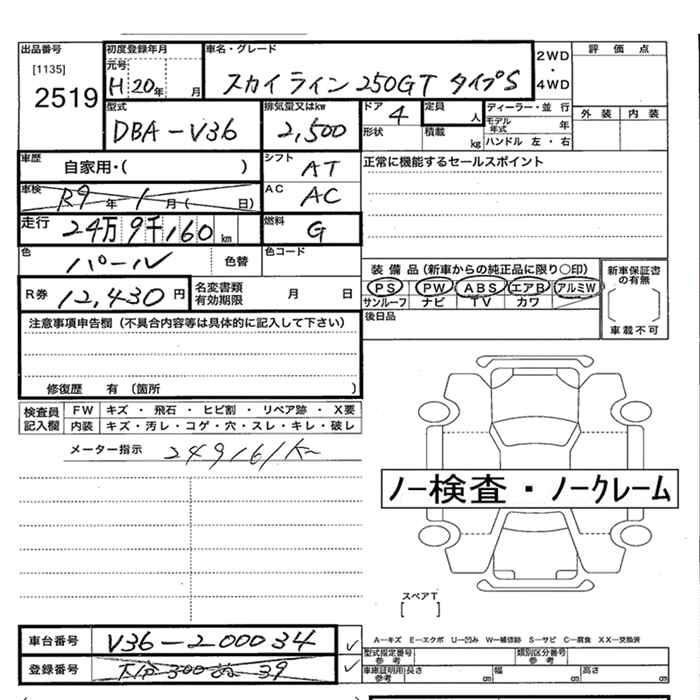 出品番号 初度登録年月 車名・グレード 評価点
[1135] 元号 2WD
2519 H20年 月 スカイライン 250GT タイプS ・
4WD
型式 排気量又はkw ドア 定員 ディーラー・並行 外装 内装
DBA-V36 2,500 4 人 モデル年式 年
形状 積載 kg ハンドル 左・右
車歴 自家用・( ) シフト AT 正常に機能するセールスポイント
車検 R9年 1月( 日) AC AC
走行 24万9千160km 燃料 G
色 パール 色替 色コード
装備品(新車からの純正品に限り○印) 新車保証書の有無
R券 12,430円 名変書類有効期限 月 日 PS PW ABS エアB アルミW
サンルーフ ナビ TV カワ
注意事項申告欄(不具合内容等は具体的に記入して下さい) 後日品 車載不可
修復歴 有(箇所 )
検査員記入欄 FW キズ・飛石・ヒビ割・リペア跡・X要
内装 キズ・汚レ・コゲ・穴・スレ・キレ・破レ
メーター指示 249161K
ノー検査・ノークレーム
スペアT
[ ]
車台番号 V36-200034 A-キズ E-エクボ U-凹み W-補修跡 S-サビ C-腐食 XX-交換済
型式指定番号 参考 類別区分番号 参考
登録番号 300 39 車庫証明用参考 長さ cm 幅 cm 高さ cm